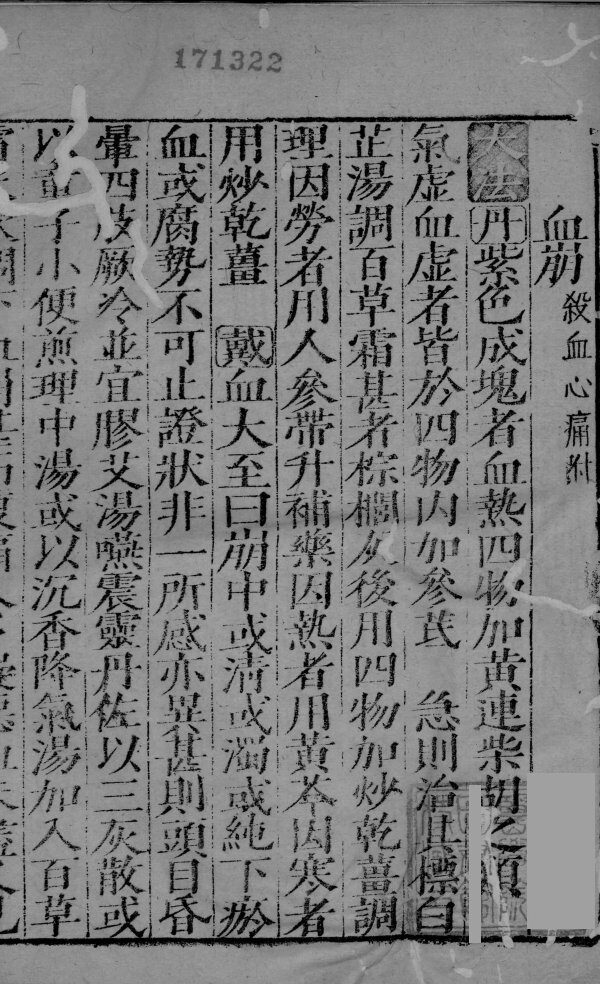 171322
血崩 殺血心痛附
大法 丹 紫色成塊者血熱四物加黃連柴胡之類
氣虛血虛者皆於四物內加參芪 急則治其標白
芷湯調百草霜甚者棕櫚灰後用四物加炒乾薑調
理因勞者用人參帶升補藥因熱者用黃芩因寒者
用炒乾薑 戴 血大至曰崩中或清或濁或純下瘀
血或腐勢不可止證狀非一所感亦異甚則頭目昏
暈四肢厥冷並宜膠艾湯嚥震靈丹佐以三灰散或
以童子小便煎理中湯或以沉香降氣湯加入百草